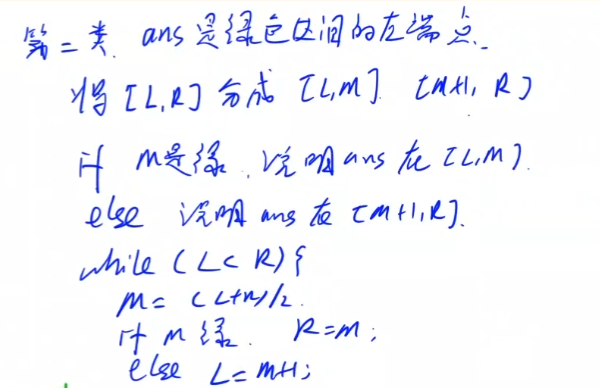 第二类. ans是绿色区间的左端点.
将[L,R]分成[L,M] [M+1,R]
if M是绿, 说明ans在[L,M].
else 说明ans在[M+1,R].
while (L<R){
M=(L+R)/2.
if M绿. R=M;
else L=M+1;